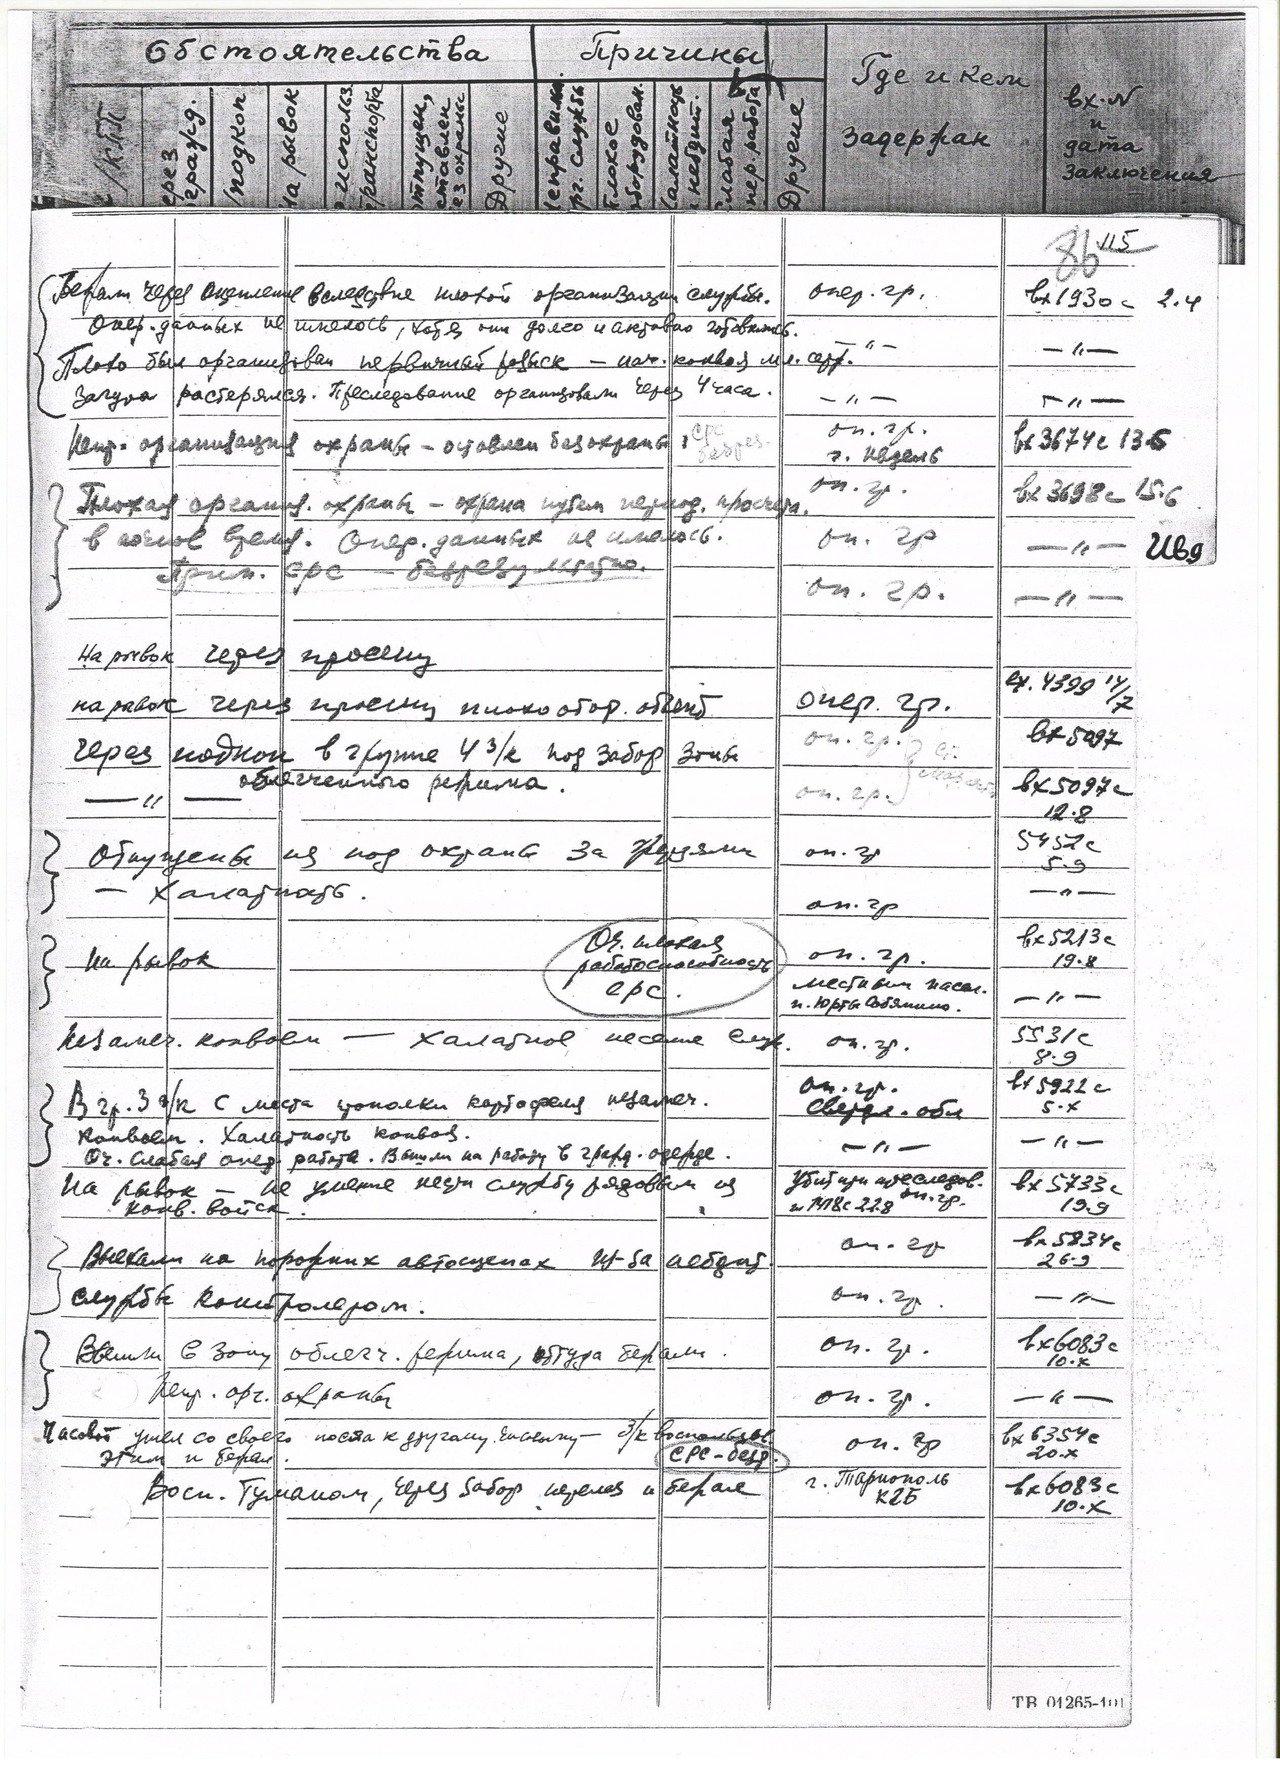 Обстоятельства
Причины
Где и кем
задержан
вх. N
и
дата
заключения
/КПП
через
огражд.
подкоп
На рывок
с использ.
транспорта
отпущен,
оставлен
без охраны
Другие
Неправильн.
орг. службы
Плохое
оборудован.
Халатность
Слабая
опер. работа
Другие
86
115
Бежали через оцепление вследствие плохой организации службы.
опер. гр.
вх 1930с 2.4
Опер. данных не имелось, хотя они долго и активно готовились.
—"—
—"—
Плохо был организован первичный розыск — нач. конвоя мл. серж.
растерялся. Преследование организовали через 4 часа.
—"—
—"—
Непр. организация охраны — оставлен без охраны
СРС
безрез.
оп. гр.
вх 3674с 13.6
Плохая организ. охраны — охрана путем период. просчета
оп. гр.
вх 3698с 15.6
в ночное время. Опер. данных не имелось.
оп. гр
—"—
Прим. СРС — безрезультатно.
оп. гр.
—"—
На рывок через просеку
на рывок через просеку плохо обор. объект
опер. гр.
вх. 4399 14/7
Через подкоп в группе 4 з/к под забор зоны
оп. гр.
вх 5097
облегченного режима.
—"—
оп. гр.
вх 5097с
12.8
Отпущены из под охраны за
оп. гр
5452с
5.9
— Халатность.
оп. гр
—"—
На рывок
Оч. плохая
работоспособность
СРС.
оп. гр.
вх 5213с
19.8
местным насел.
п. Юрты
—"—
Незамеч. конвоем — Халатное несение служ.
оп. гр.
5531с
8.9
В гр. 3 з/к с места прополки картофеля незамеч.
оп. гр.
Свердл. обл
вх 5922с
5.X
конвоем. Халатность конвоя.
—"—
—"—
Оч. слабая опер. работа. Вышли на работу в гражд. одежде.
На рывок — не умение нести службу рядовым из
конв. войск.
Убит при преследов.
оп. гр.
вх 5733с
19.9
Выехали на порожних автосцепах из-за недобр.
оп. гр
вх 5834с
26.9
службы контролером.
оп. гр.
—"—
Вышли в зону облегч. режима, оттуда бежали.
оп. гр.
вх 6083с
10.X
Непр. орг. охраны
оп. гр.
—"—
Часовой ушел со своего поста к другому часовому — з/к воспользов.
этим и бежал.
СРС-безр.
оп. гр
вх 6354с
20.X
Восп. Туманом, через забор перелез и бежал
г. Тарнополь
КГБ
вх 6083с
10.X
ТВ 01265-101